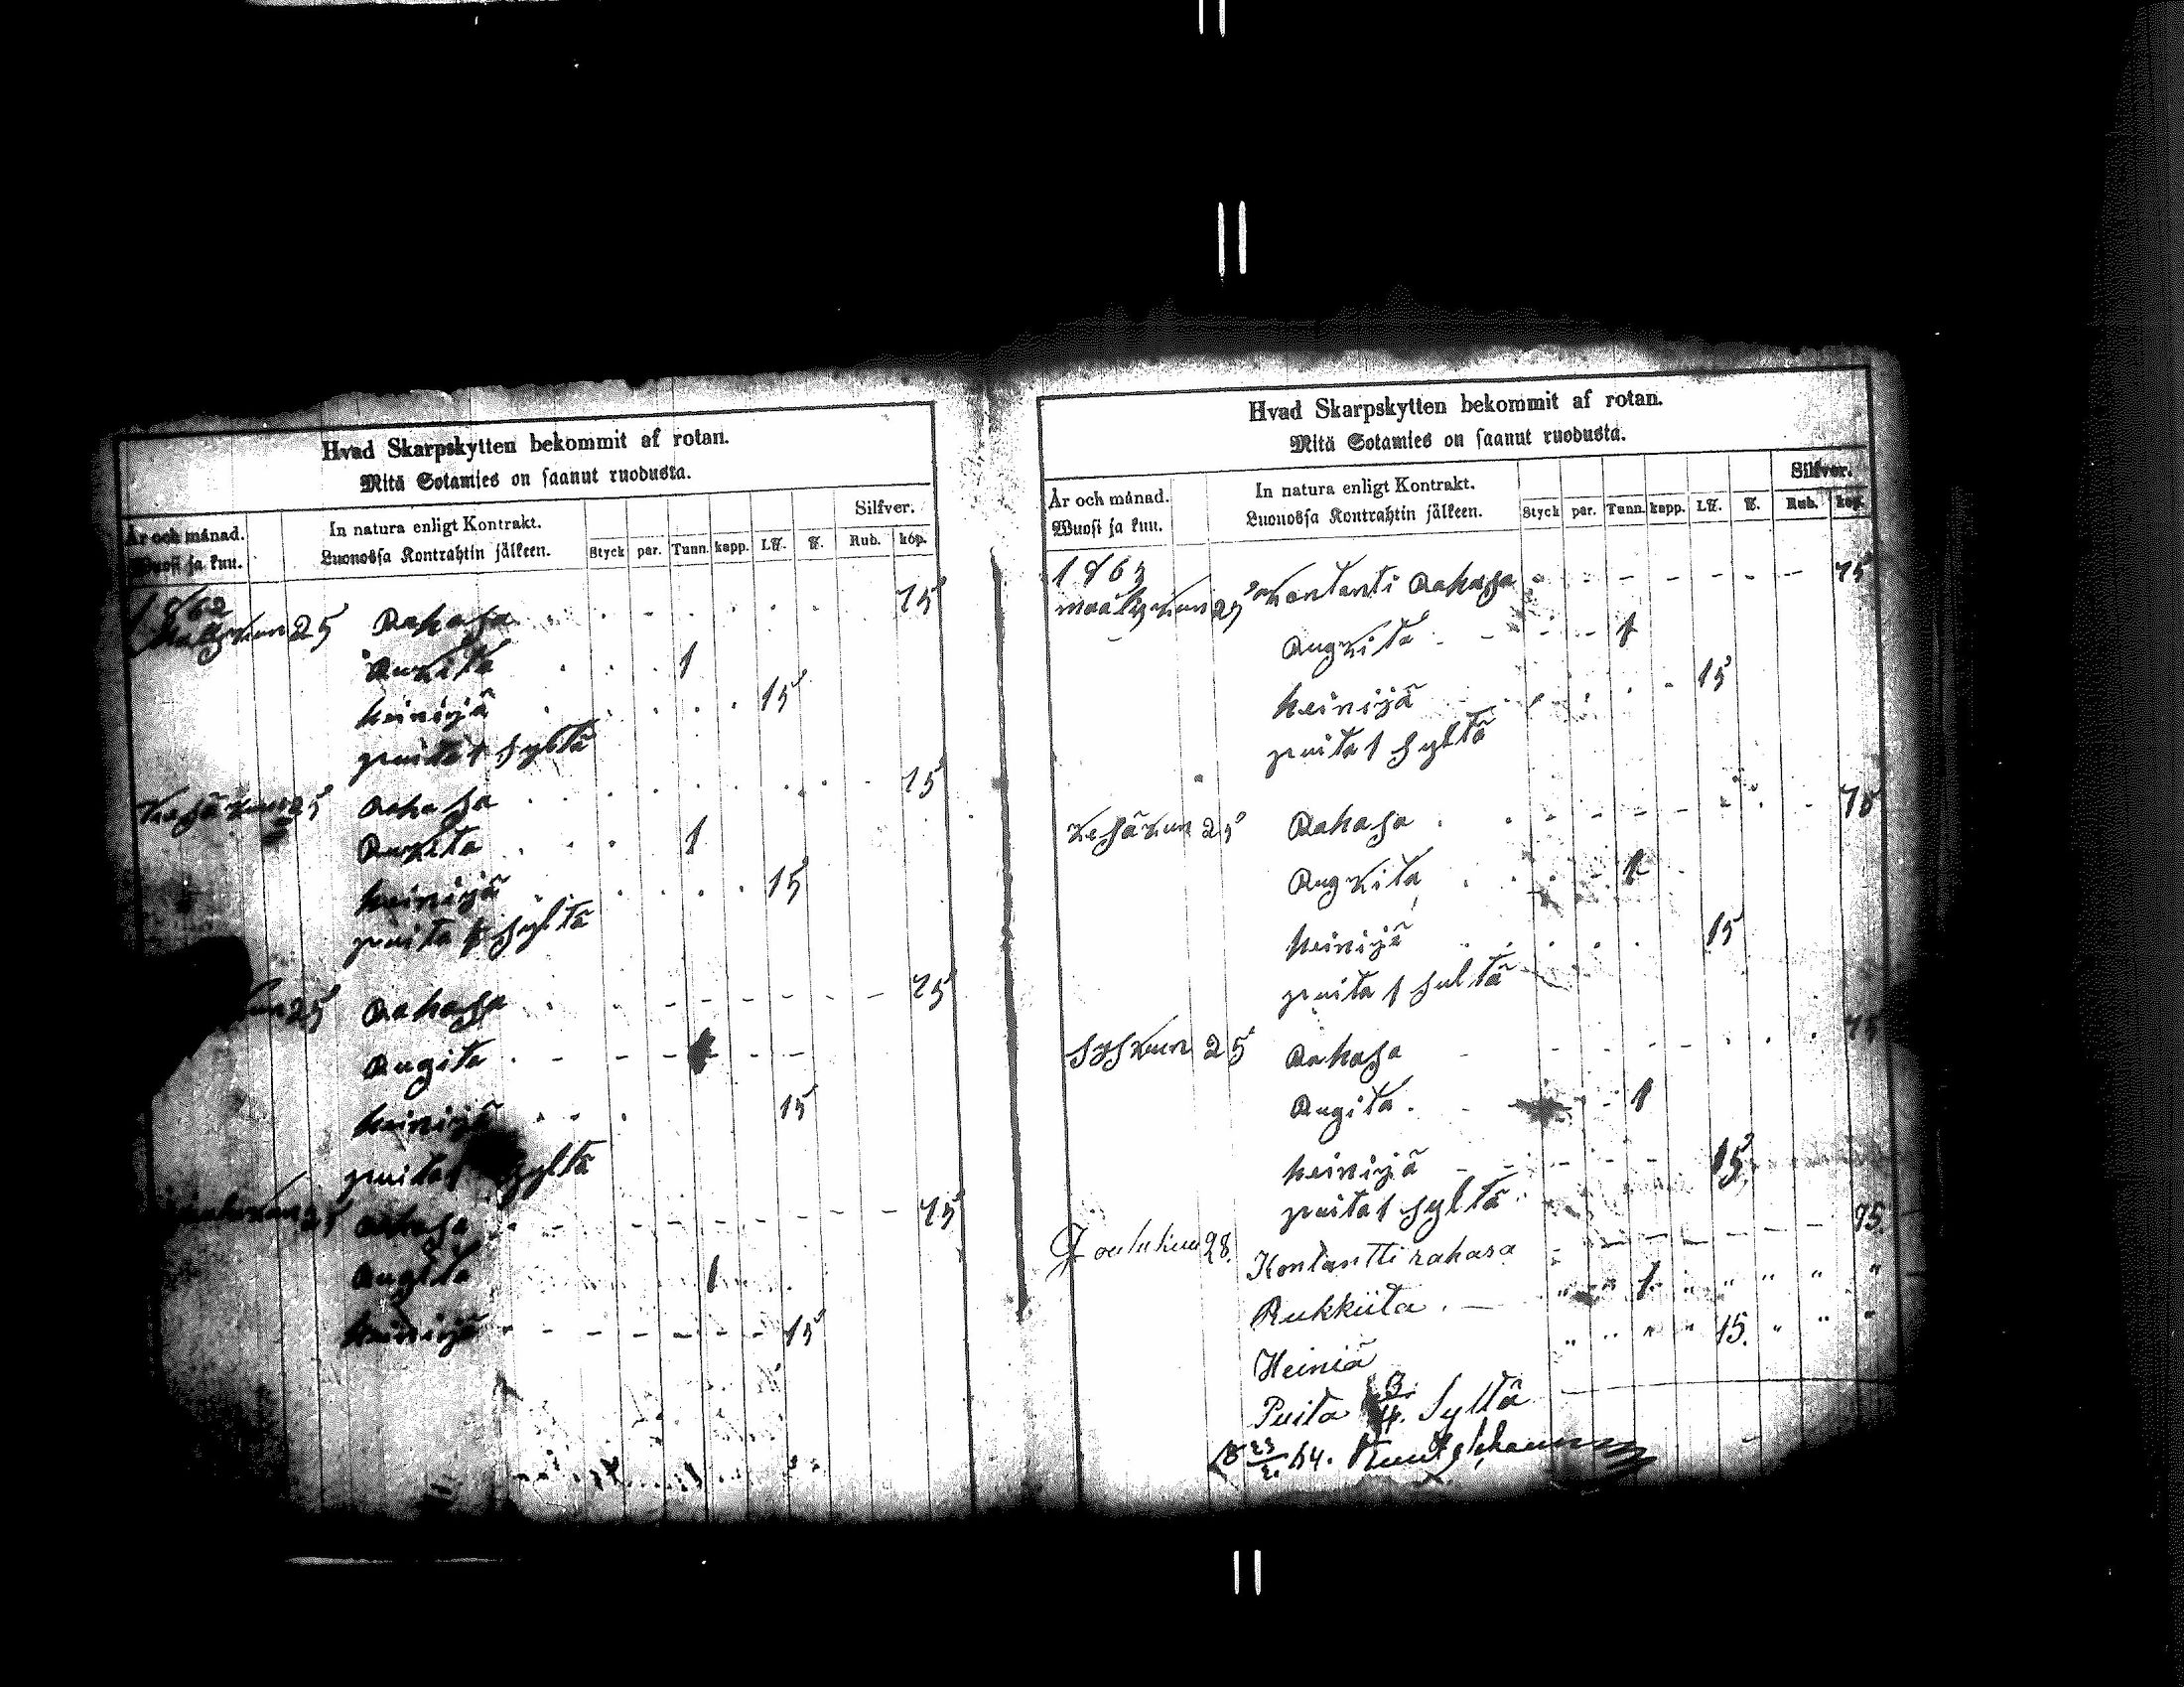 Hvad Skarpskytten bekommit af rotan.
Mitä Sotamies on saanut ruodusta.
År och månad.
Wuosi ja kuu.
In natura enligt Kontrakt.
Luonossa Kontrahtin jälkeen.
Styck par. Tunn. kapp. L℔. ℔. Silfver. Rub. kop.
1862
25 Rahasa 75
Rukita 1
heinijä 15
puita 1 syltä
25 Rahasa 75
Rukita 1
heinijä 15
puita 1 syltä
25 Rahasa 75
Rugita
heinijä 15
puita 1 syltä
25 Rahasa 75
Rugita 1
heinijä 15
Hvad Skarpskytten bekommit af rotan.
Mitä Sotamies on saanut ruodusta.
År och månad.
Wuosi ja kuu.
In natura enligt Kontrakt.
Luonossa Kontrahtin jälkeen.
Styck par. Tunn. kapp. L℔. ℔. Silfver. Rub. kop.
1863
maalizkun 25 kontanti Rahasa 75
Rugkita 1
heinijä 15
puita 1 syltä
kesäkun 25 Rahasa 75
Rugkita 1
heinijä 15
puita 1 sultä
syskuun 25 Rahasa 75
Rugita 1
heinijä 15
puita 1 syltä
Joulukuu 28. Kontantti rahasa 75
Rukkiita 1
Heiniä 15.
Puita 3/4. Syltä
64.